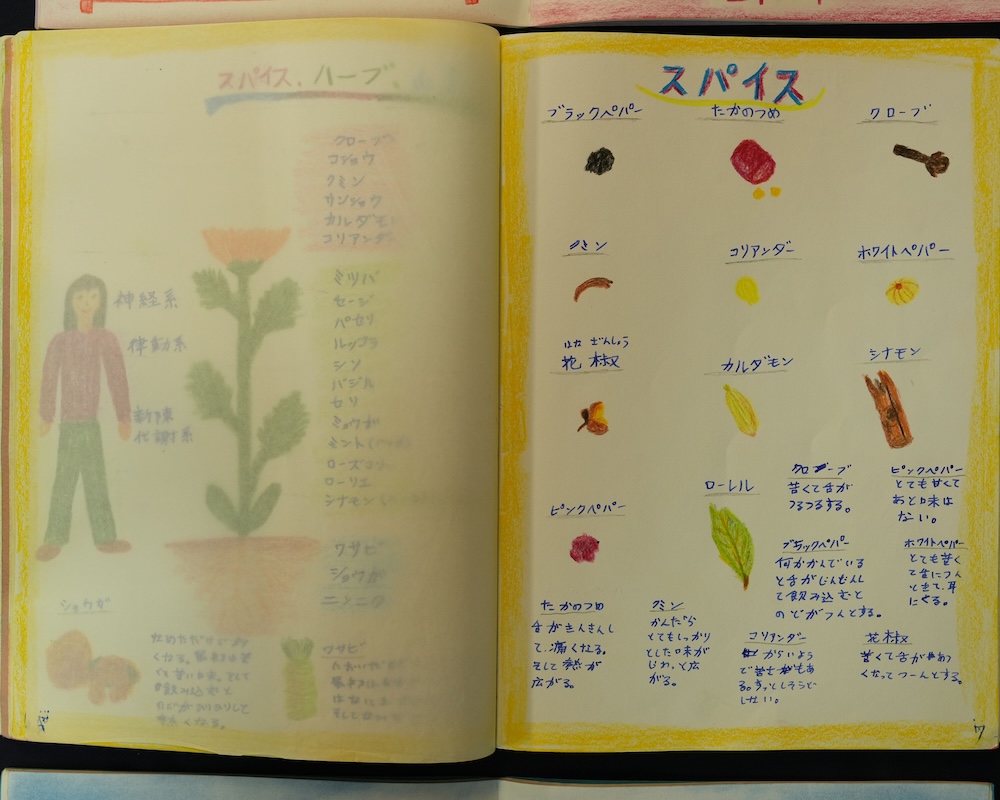 スパイス、ハーブ、
クローブ
コショウ
クミン
サンショウ
カルダモン
コリアンダー
ミツバ
セージ
パセリ
ルッコラ
シソ
バジル
セリ
ミョウガ
ミント
ローズマリー
ローリエ
シナモン
ワサビ
ショウガ
ニンニク
神経系
律動系
新陳
代謝系
ショウガ
ワサビ
スパイス
ブラックペパー
たかのつめ
クローブ
クミン
コリアンダー
ホワイトペパー
はな ざんしょう
花椒
カルダモン
シナモン
ピンクペパー
ローレル
クローブ
苦くて舌が
つるつるする。
ピンクペパー
とても甘くて
あと味は
ない。
ブラックペパー
何かかんでいる
と舌がじんじんし
て飲み込むと
のどがつんとする。
ホワイトペパー
とても苦く
て舌につん
ときて、耳
にくる。
たかのつめ
舌がきんきんし
て、痛くなる。
そして熱が
広がる。
クミン
かんだら
とてもしっかり
とした味が
じわっと広
がる。
コリアンダー
からいよう
で苦さもあ
る。すっとしそうで
しない。
花椒
苦くて舌があつ
くなってつーんとする。
17